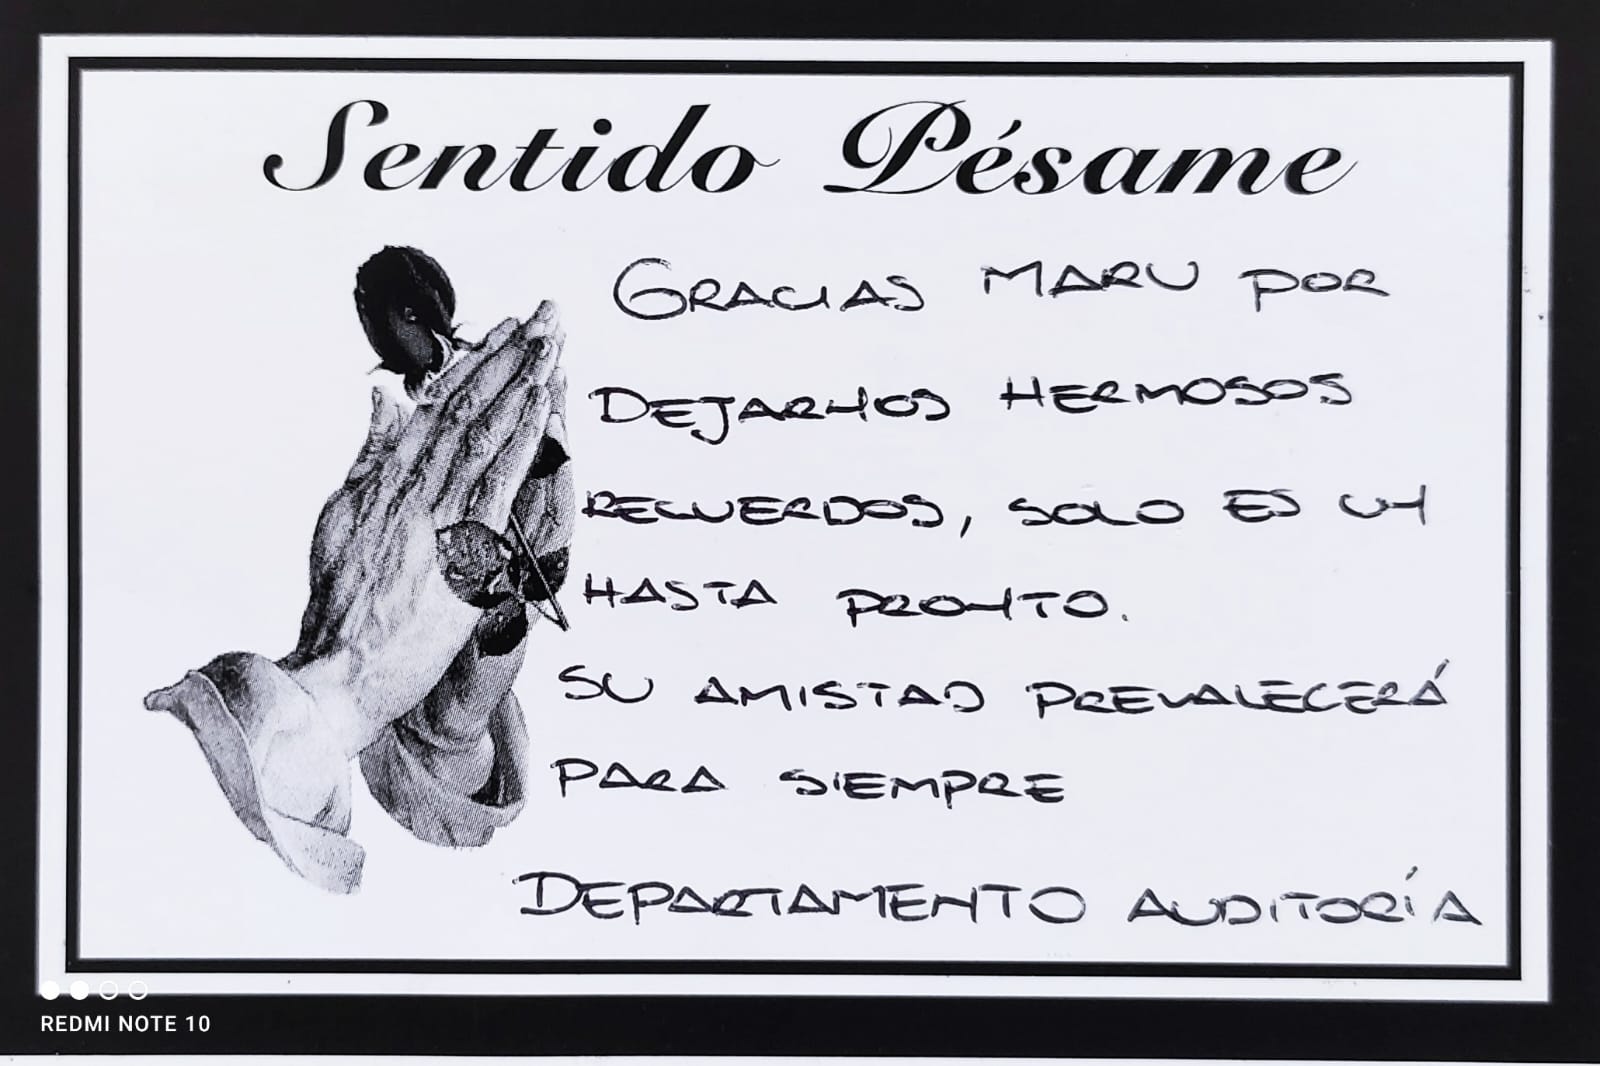 Sentido Pésame
GRACIAS MARU POR
DEJARNOS HERMOSOS
RECUERDOS, SOLO ES UN
HASTA PRONTO.
SU AMISTAD PREVALECERÁ
PARA SIEMPRE
DEPARTAMENTO AUDITORÍA
REDMI NOTE 10